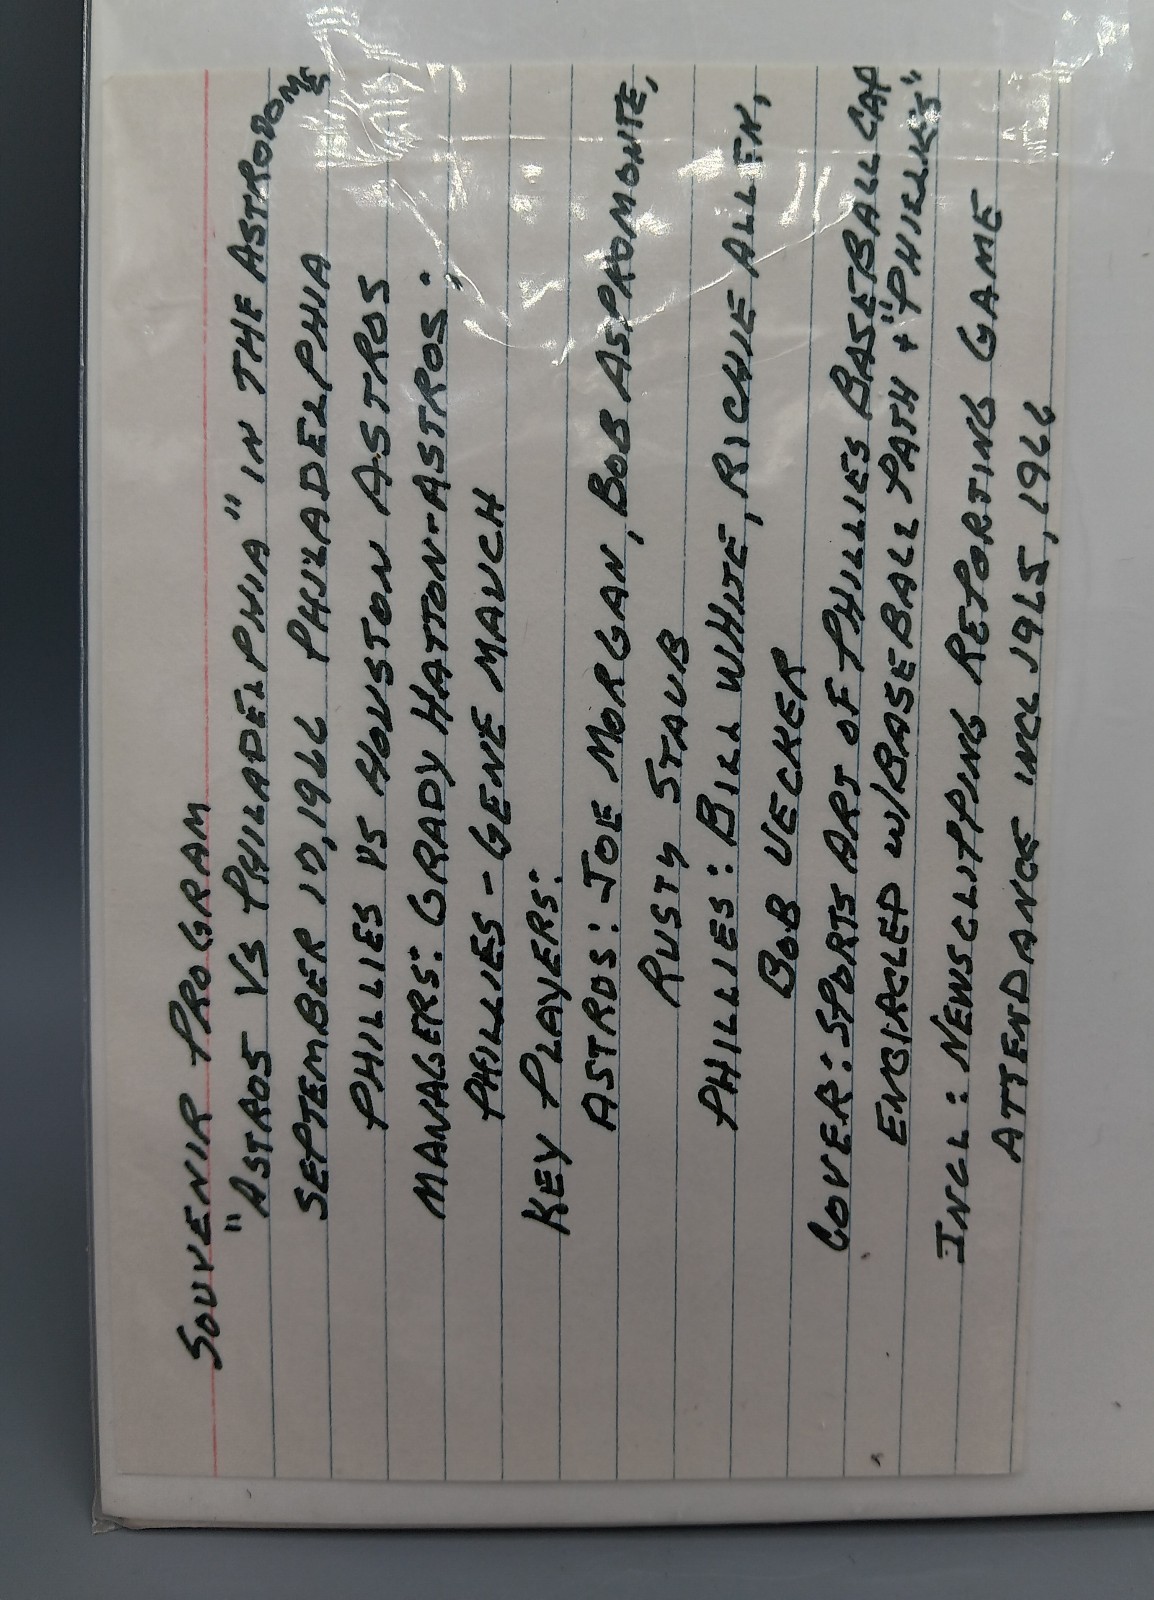 SOUVENIR PROGRAM
"ASTROS VS PHILADELPHIA" IN THE ASTRODOME
SEPTEMBER 17, 1966 PHILADELPHIA
PHILLIES VS HOUSTON ASTROS
MANAGERS: GRADY HATTON-ASTROS;
PHILLIES - GENE MAUCH
KEY PLAYERS:
ASTROS: JOE MORGAN, BOB ASPROMONTE,
RUSTY STAUB
PHILLIES: BILL WHITE, RICHIE ALLEN,
BOB UECKER
COVER: SPORTS ART OF PHILLIES BASEBALL CAP
ENCIRCLED W/BASEBALL PATH + "PHILLIES"
INCL: NEWSCLIPPING REPORTING GAME
ATTENDANCE INCL 1965, 1966